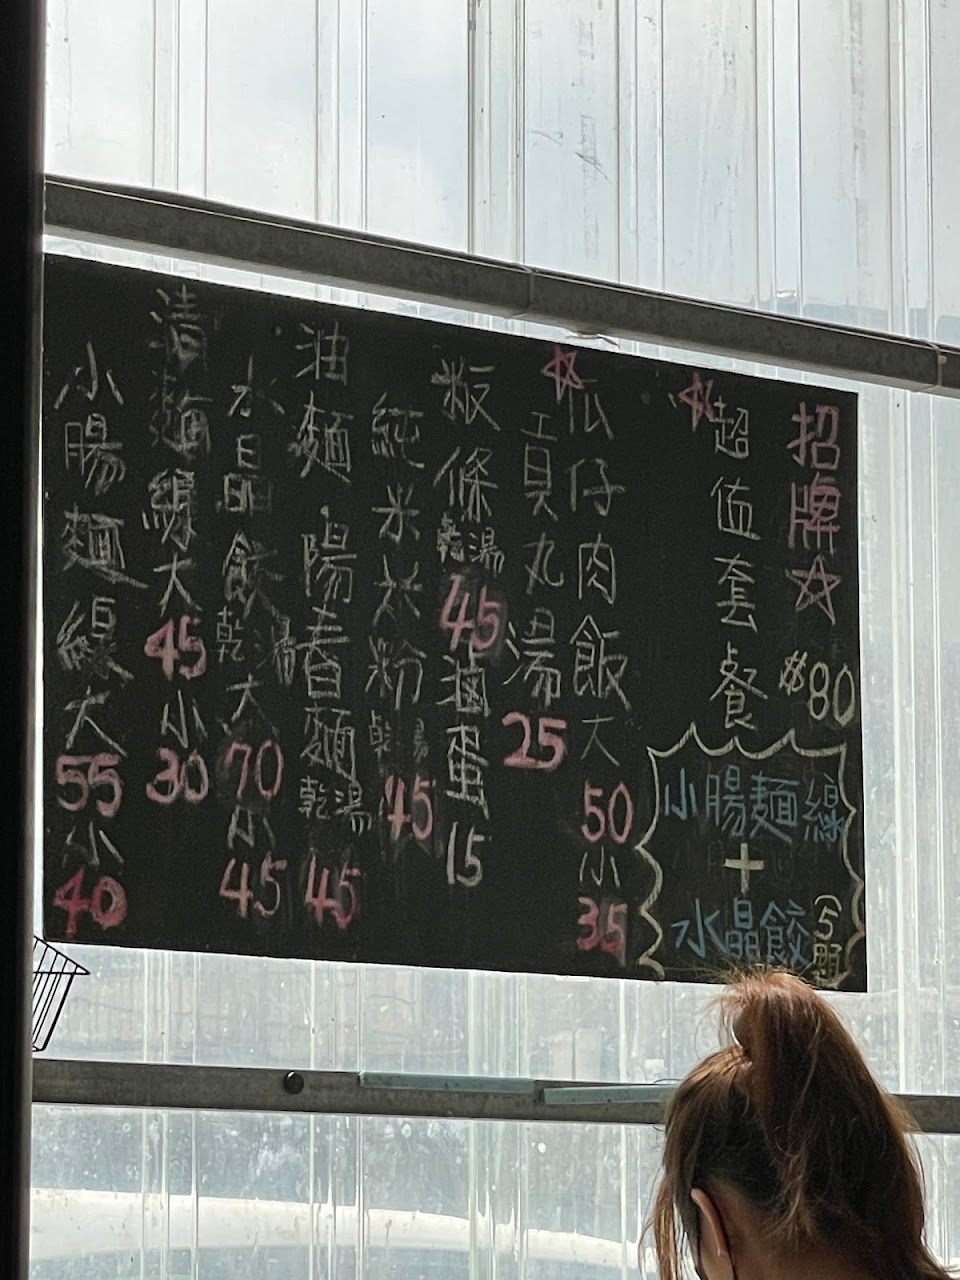 招牌☆ $80
☆超值套餐
小腸麵線
+
水晶餃(5顆
☆瓜仔肉飯 大 50 小 35
貢丸湯 25
粄條 乾 湯 45
滷蛋 15
純米米粉 乾 湯 45
油麵 陽春麵 乾 湯 45
水晶餃 乾 湯 大 70 小 45
清麵線 大 45 小 30
小腸麵線 大 55 小 40